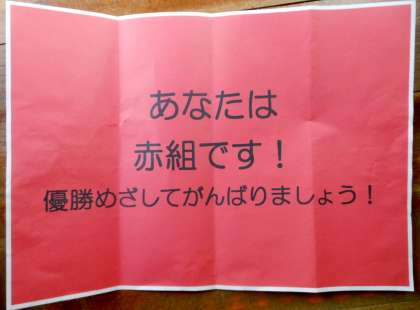 あなたは
赤組です！
優勝めざしてがんばりましょう！